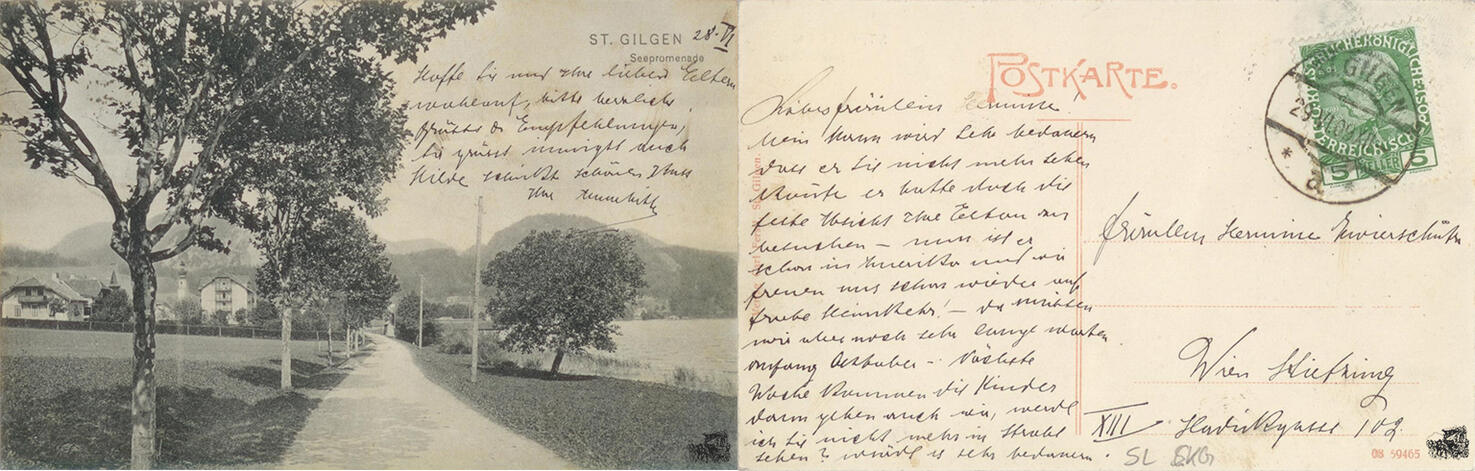 ST. GILGEN 28. VI
Seepromenade
Hoffe Sie und Ihre lieben Eltern
wohlauf, bitte herzliche
Grüße & Empfehlungen,
Sie grüsst innigst auch
Hilde schickt schönen Kuss
Ihre
POSTKARTE.
Liebes Fräulein Hermine!
Mein Mann wird sehr bedauern
dass er Sie nicht mehr sehen
könnte er hatte doch die
feste Absicht Ihre Eltern zu
besuchen – nun ist er
schon in Amerika und wir
freuen uns schon wieder auf
frohe Heimkehr! – Da müssen
wir aber noch sehr lange warten
anfang October – Nächste
Woche kommen die Kinder
dann gehen auch wir, werde
ich Sie nicht mehr in Strobl
sehen? würde es sehr bedauern.
ST. GILGEN
5 HELLER 5
* a *
Fräulein Hermine
Wien Hietzing
XIII Hadikgasse 102
SL SKG
08 59465